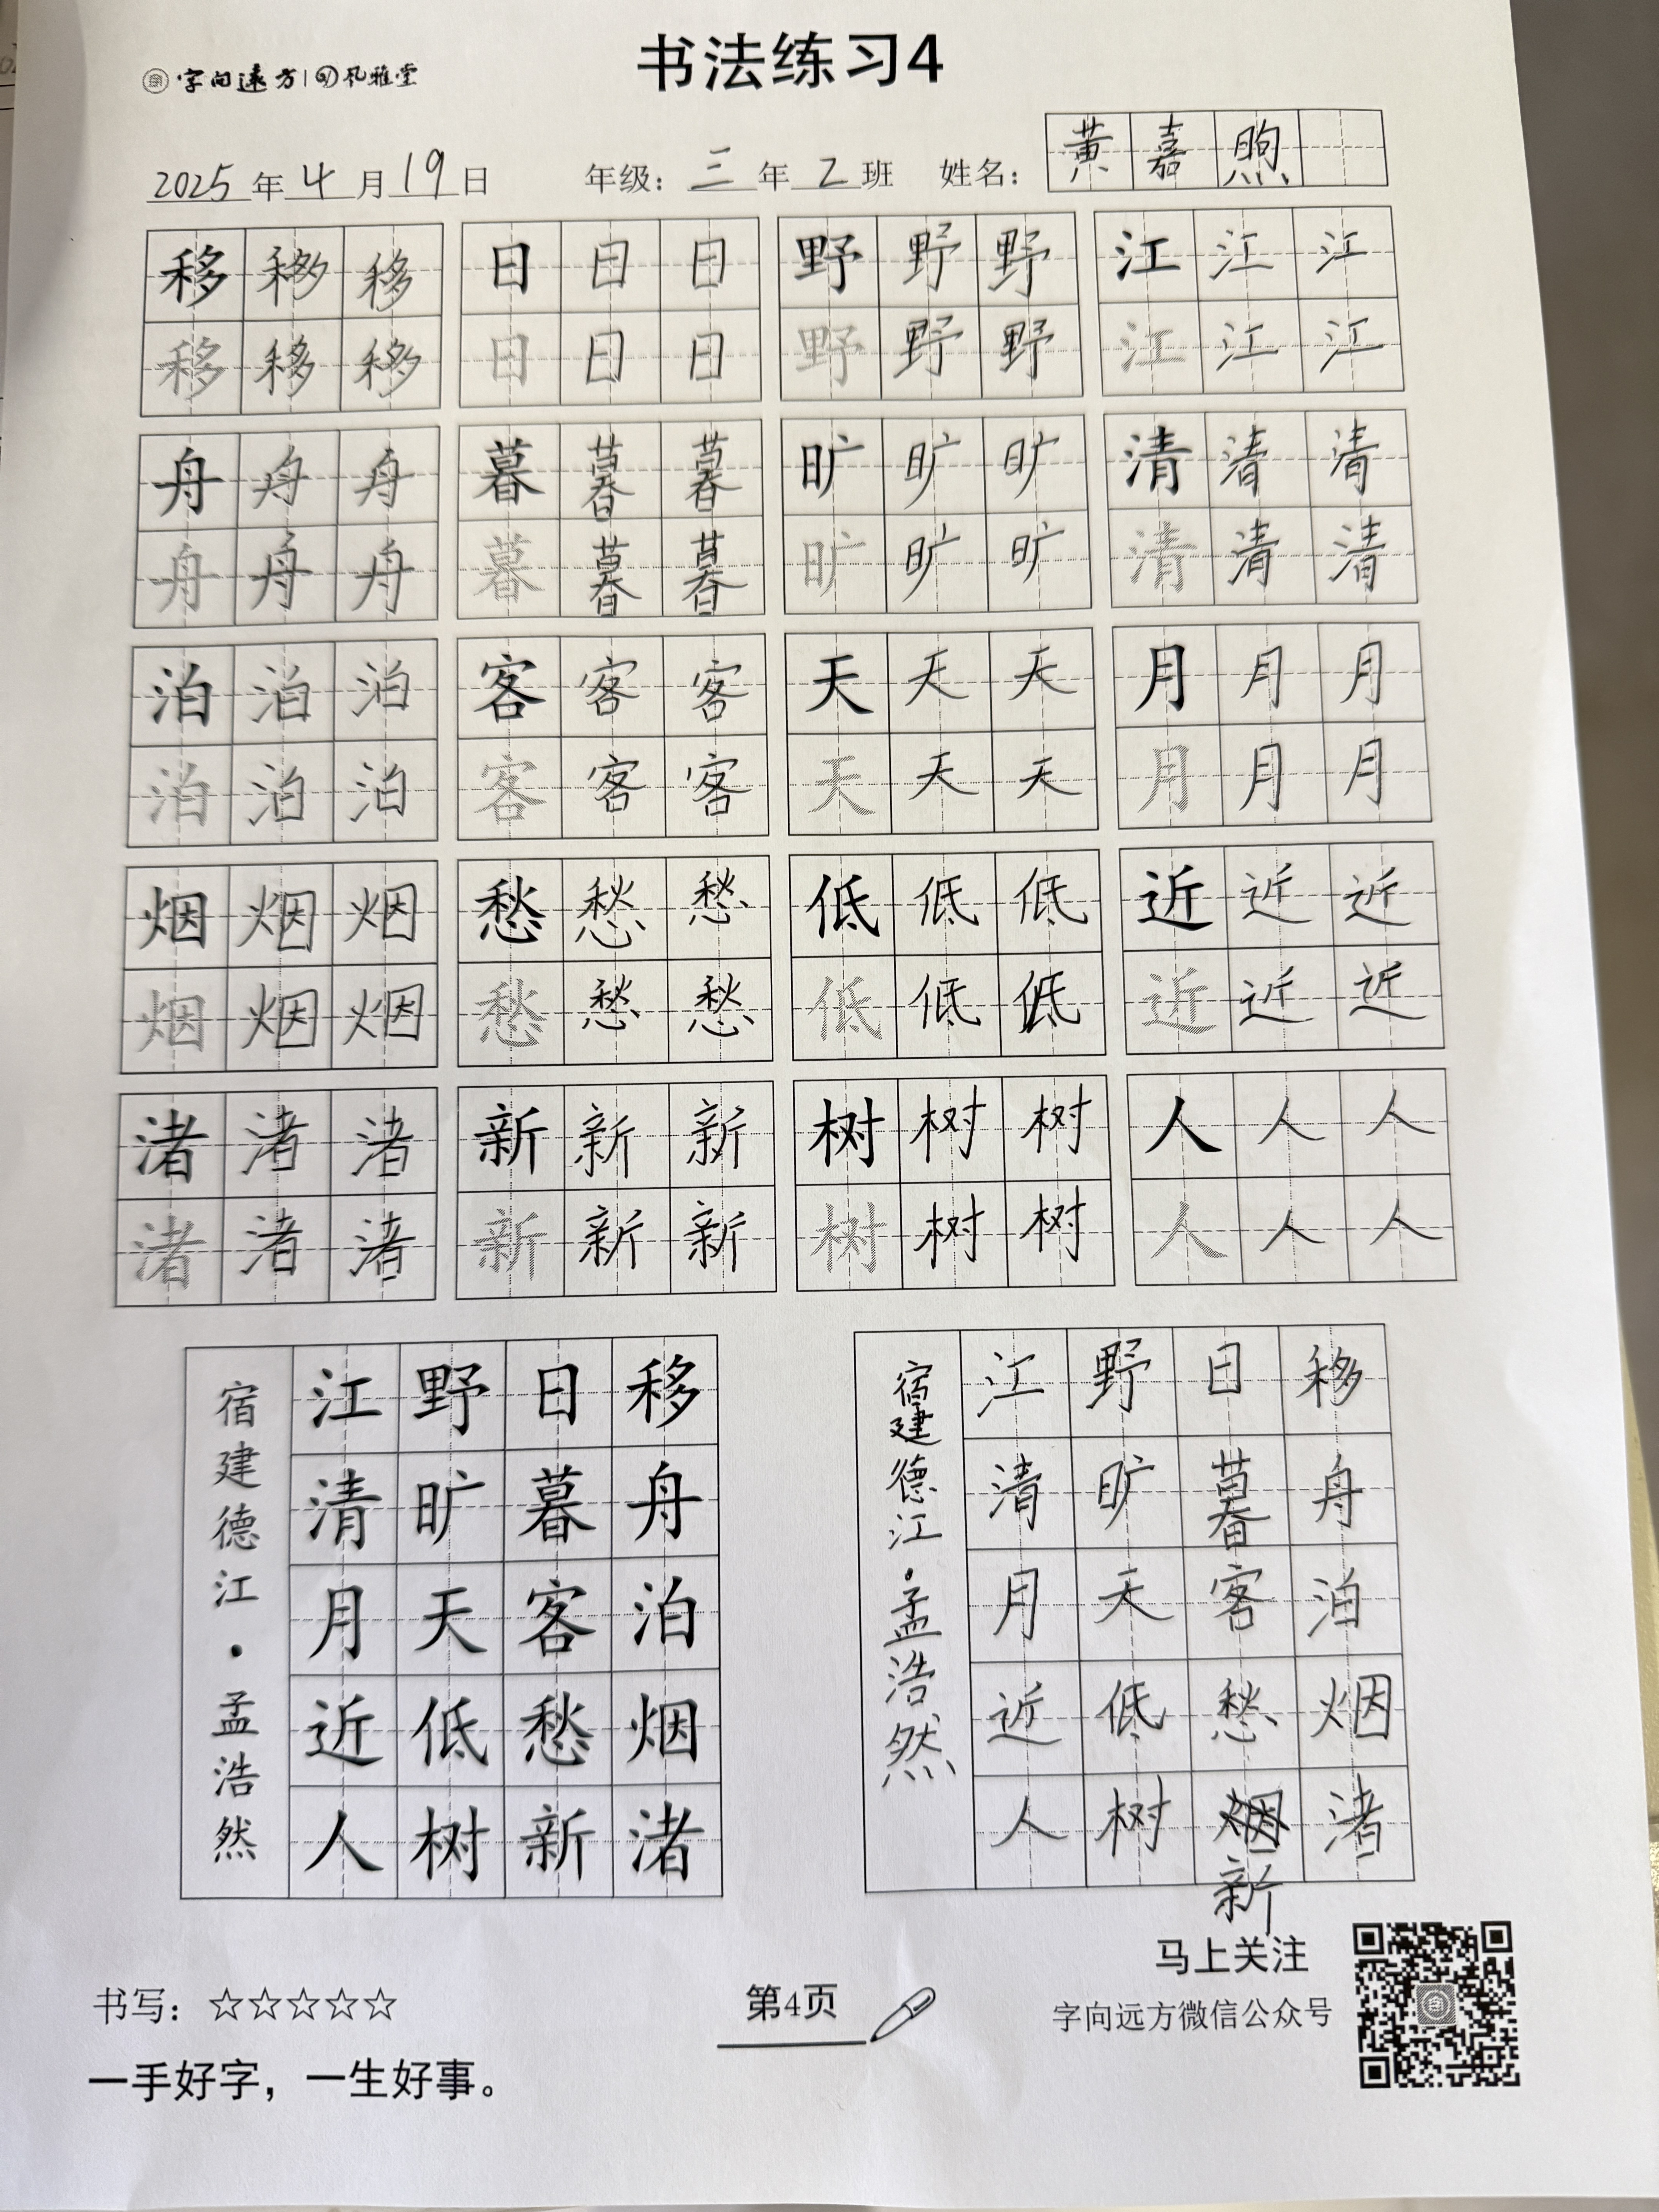 字向远方 风雅堂
书法练习4
2025年4月19日 年级：三年2班 姓名：黄嘉煦
移移移 日日日 野野野 江江江
移移移 日日日 野野野 江江江
舟舟舟 暮暮暮 旷旷旷 清清清
舟舟舟 暮暮暮 旷旷旷 清清清
泊泊泊 客客客 天天天 月月月
泊泊泊 客客客 天天天 月月月
烟烟烟 愁愁愁 低低低 近近近
烟烟烟 愁愁愁 低低低 近近近
渚渚渚 新新新 树树树 人人人
渚渚渚 新新新 树树树 人人人
移舟泊烟渚
日暮客愁新
野旷天低树
江清月近人
宿建德江·孟浩然
移舟泊烟渚
日暮客愁烟新
野旷天低树
江清月近人
宿建德江·孟浩然
书写：☆☆☆☆☆
一手好字，一生好事。
第4页
马上关注
字向远方微信公众号